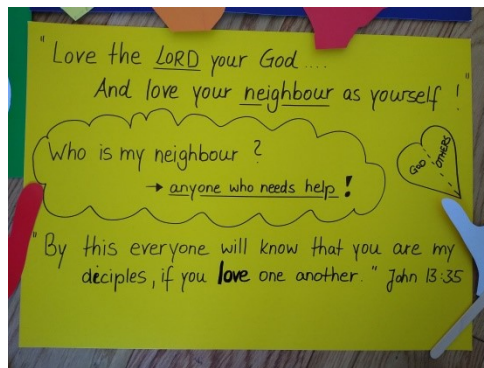 "Love the LORD your God ....
And love your neighbour as yourself !"
Who is my neighbour ?
→ anyone who needs help !
GOD OTHERS
"By this everyone will know that you are my
diciples, if you love one another." John 13:35